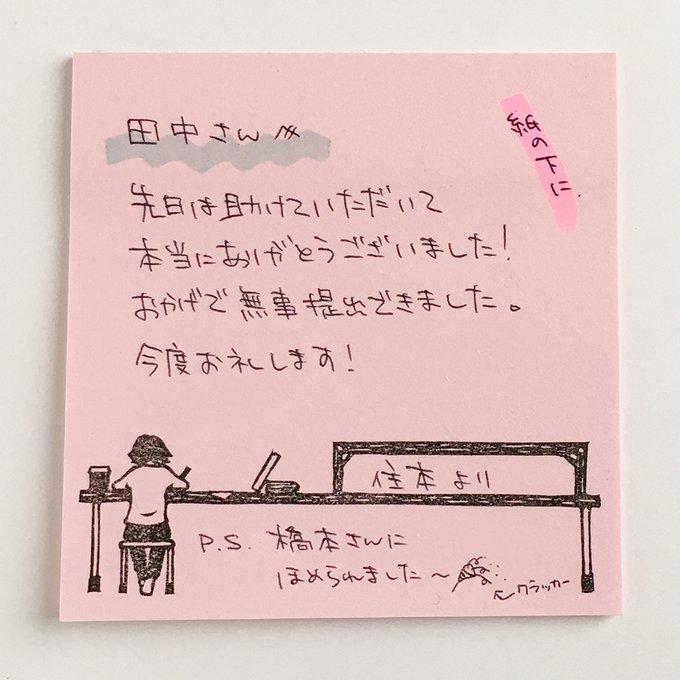 田中さんへ
紙の下に
先日は助けていただいて
本当にありがとうございました！
おかげで無事提出できました。
今度お礼します！
住本より
P.S. 橋本さんに
ほめられました〜
クラッカー